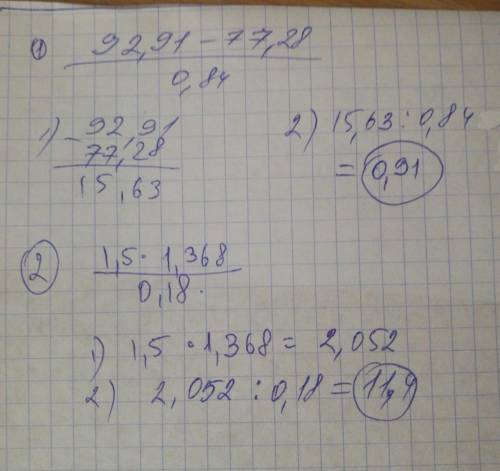 ① 92,91 - 77,28
0,84
1) - 92,91
77,28
15,63
2) 15,63 : 0,84
= 0,91
② 1,5 · 1,368
0,18.
1) 1,5 · 1,368 = 2,052
2) 2,052 : 0,18 = 11,4